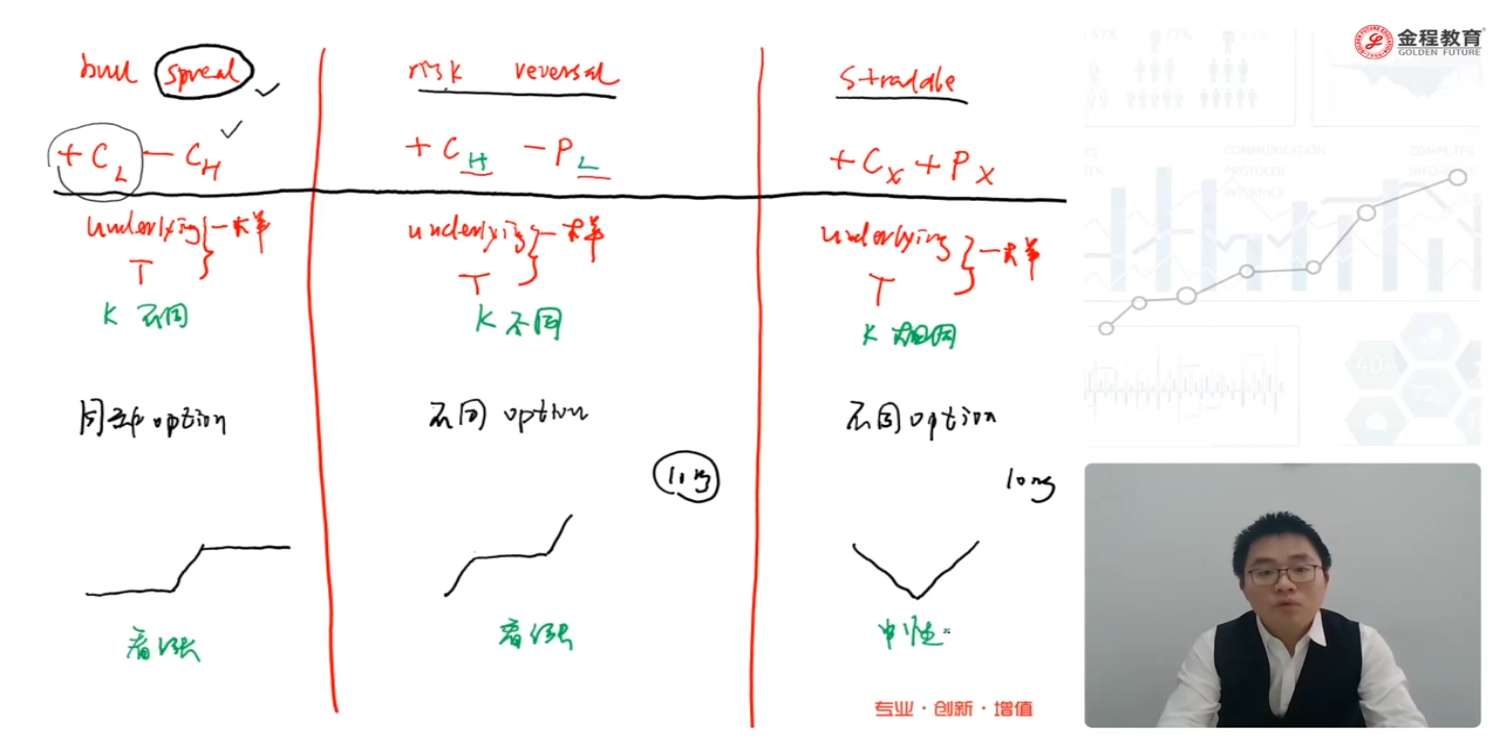 bull spread
+ C_L - C_H
underlying } 一样
T
K 不同
同种 option
看涨
risk reversal
+ C_H - P_L
underlying } 一样
T
K 不同
不同 option
long
看涨
straddle
+ C_X + P_X
underlying } 一样
T
K 相同
不同 option
long
中性
专业·创新·增值
金程教育
GOLDEN FUTURE